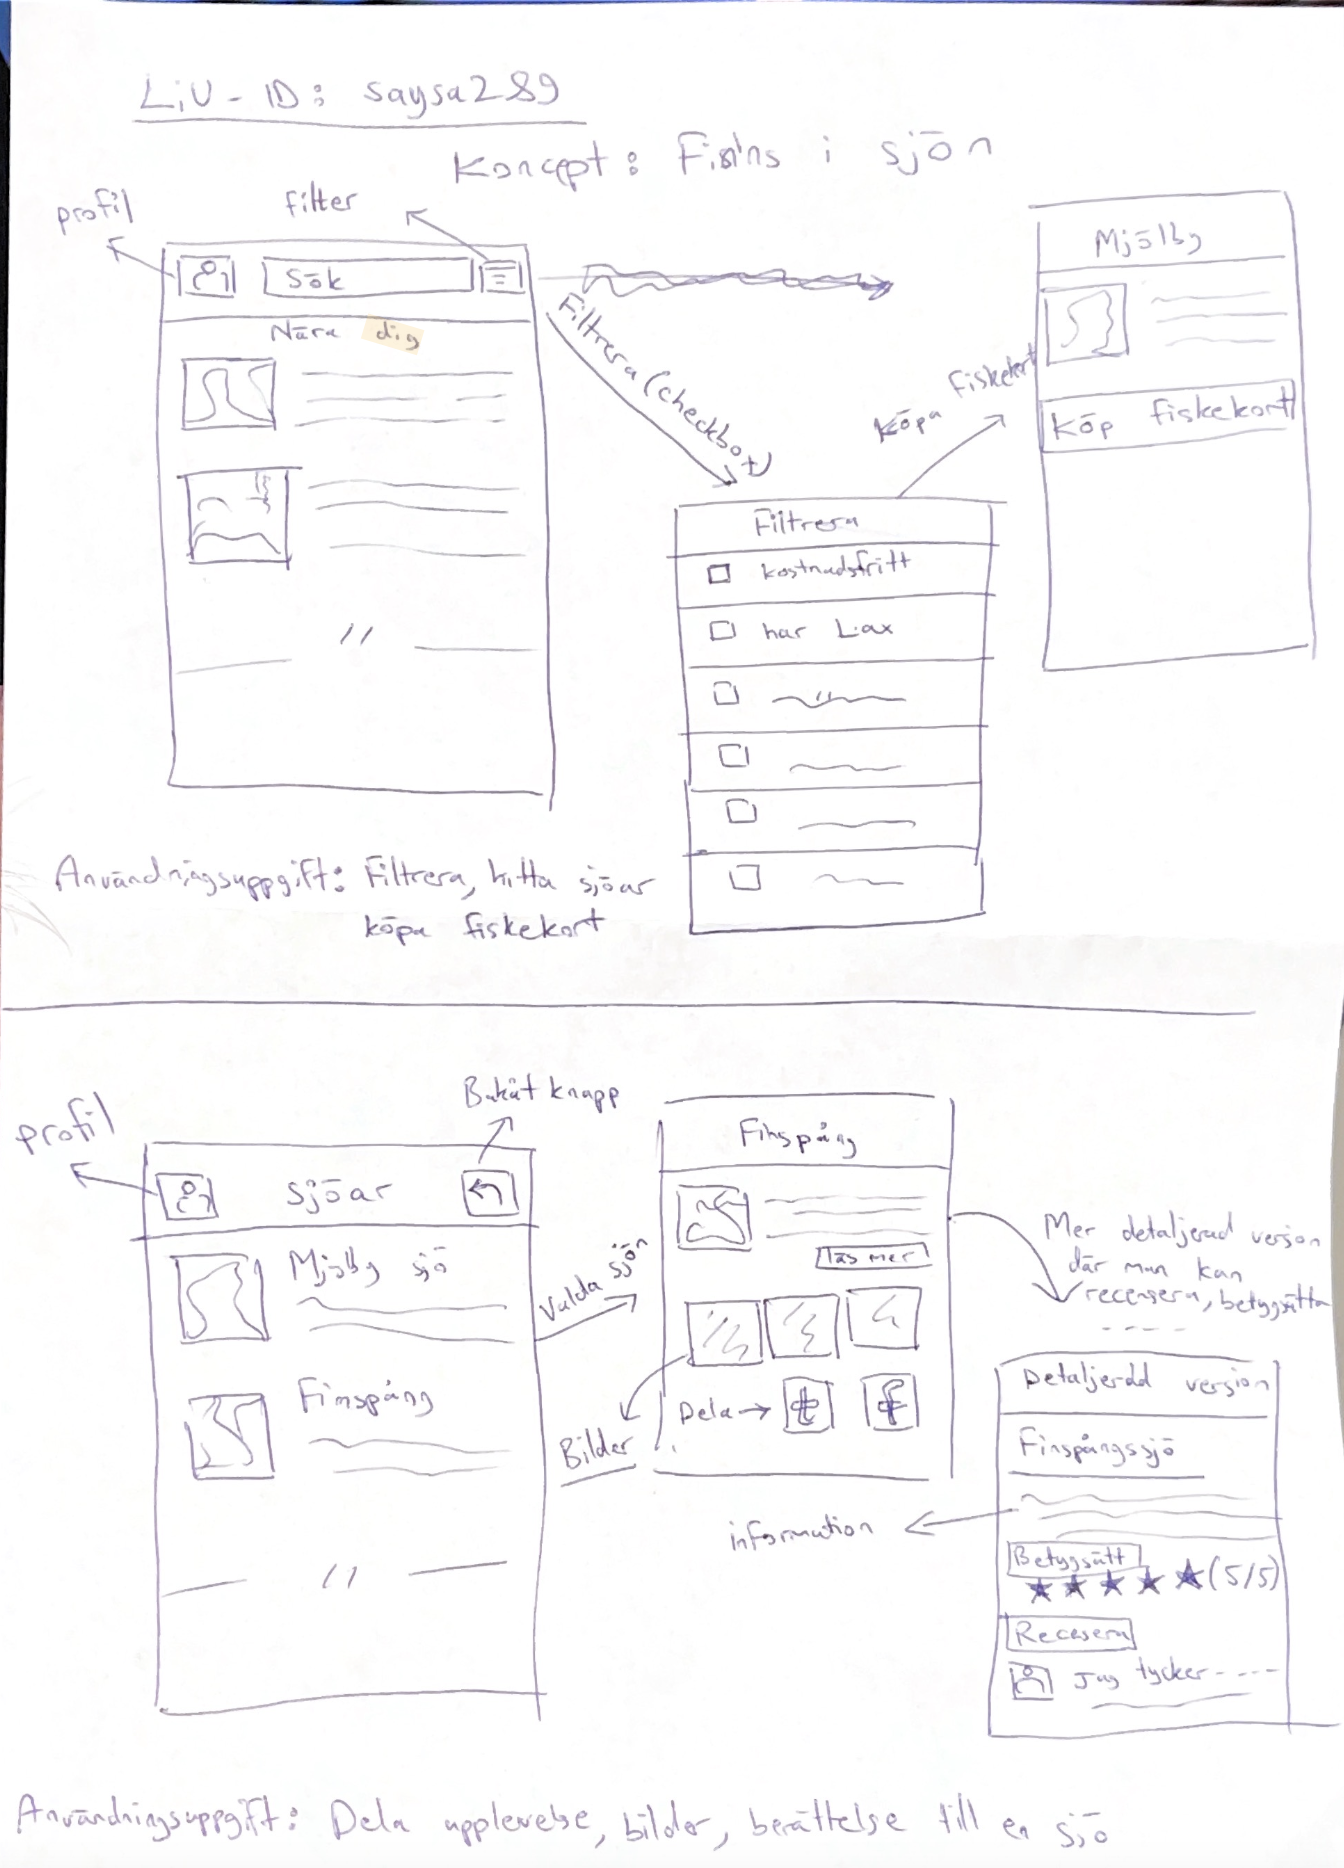 LiU-ID: saysa289
Koncept: Finns i sjön
profil
filter
Sök
Nära dig
Filtrera (checkbox)
Filtrera
kostnadsfritt
har Lax
Köpa fiskekort
Mjölby
Köp fiskekort
Användningsuppgift: Filtrera, hitta sjöar
köpa fiskekort
profil
Bakåt knapp
Sjöar
Mjölby sjö
Finspång
Valda sjön
Finspång
läs mer
Bilder
Dela → t f
Mer detaljerad version
där man kan
recensera, betygsätta
Detaljerad version
Finspångssjö
information
Betygsätt
★ ★ ★ ★ ★ (5/5)
Recesera
Jag tycker ----
Användningsuppgift: Dela upplevelse, bilder, berättelse till en sjö